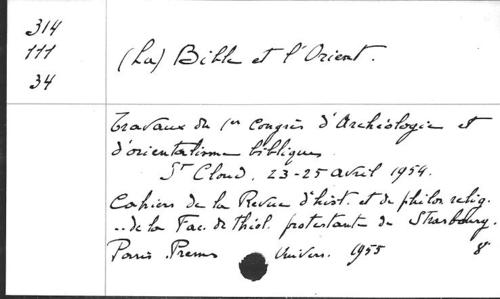 314
111
34
(La) Bible et l'Orient.
Travaux du 1er Congrès d'Archéologie et
d'orientalisme bibliques
St Cloud, 23-25 avril 1954.
Cahiers de la Revue d'hist. et de philos. relig.
..de la Fac. de théol. protestante de Strasbourg.
Paris Presses Univers. 1955 8°